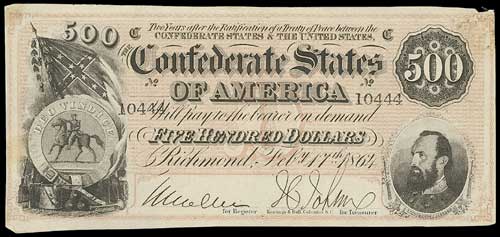 Two Years after the Ratification of a Treaty of Peace between the
CONFEDERATE STATES & THE UNITED STATES,
500 C THE C 500
Confederate States
No No
OF AMERICA
10444 10444
Will pay to the bearer on demand
DEO VINDICE
FIVE HUNDRED DOLLARS
Richmond, Feby. 17th 1864
for Register Keatinge & Ball, Columbia, S.C. for Treasurer